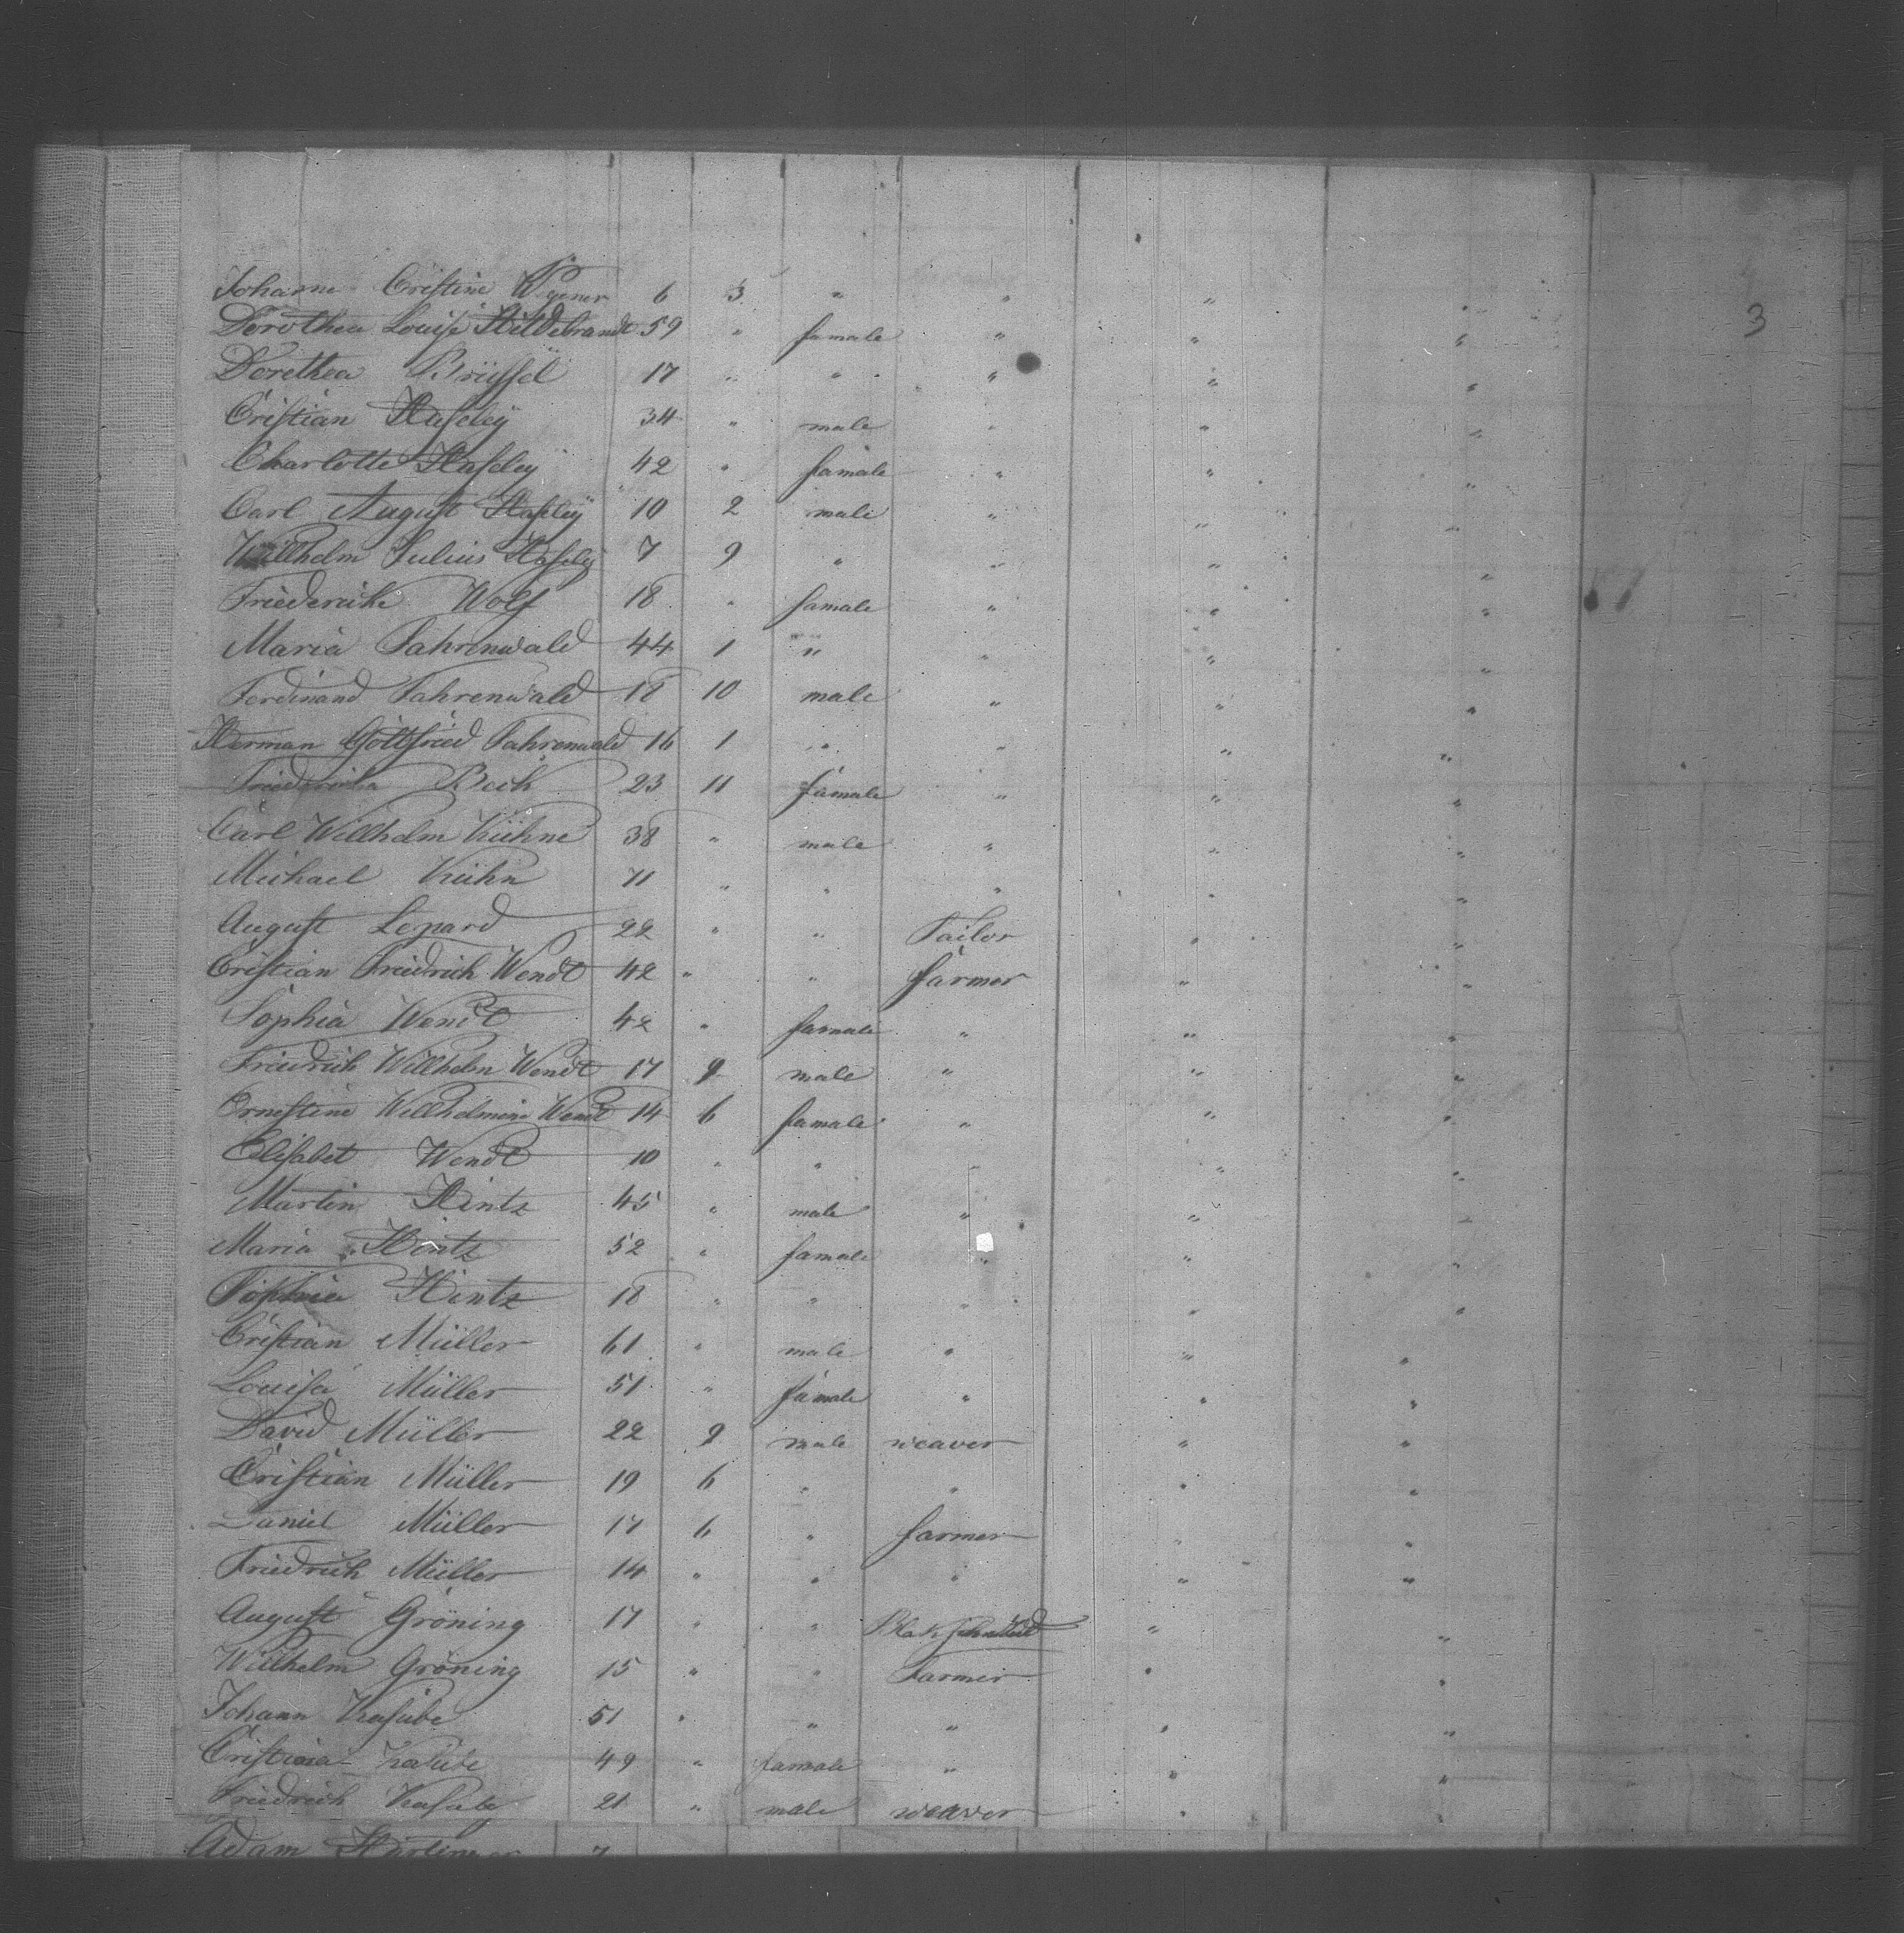 3
Johanne Cristine Wegener 6 3 " " " "
Dorothea Louise Hildebrandt 59 " famale " " "
Dorethea Brüssel 17 " " " " "
Cristian Haseley 34 " male " " "
Charlotte Haseley 42 " famale " " "
Carl August Haseley 10 2 male " " "
Willhelm Julius Haseley 7 9 " " " "
Friedericke Wolf 18 " famale " " "
Maria Fahrenwald 44 1 " " " "
Ferdinand Fahrenwald 18 10 male " " "
Herman Gottfried Fahrenwald 16 1 " " " "
Friedericka Beck 23 11 famale " " "
Carl Willhelm Kühne 38 " male " " "
Michael Kühn 71 " " " " "
August Lepard 22 " " Tailor " "
Cristian Friedrich Wendt 42 " " farmer " "
Sophia Wendt 42 " famale " " "
Friedrich Willhelm Wendt 17 9 male " " "
Ernestine Willhelmine Wendt 14 6 famale " " "
Elisabet Wendt 10 " " " " "
Martin Hintz 45 " male " " "
Maria Hintz 52 " famale " " "
Sophia Hintz 18 " " " " "
Cristian Müller 61 " male " " "
Louisa Müller 51 " famale " " "
David Müller 22 9 male weaver " "
Cristian Müller 19 6 " " " "
Daniel Müller 17 6 " farmer " "
Friedrich Müller 14 " " " " "
August Gröning 17 " " Blak " "
Willhelm Gröning 15 " " Farmer " "
Johann Kasube 51 " " " " "
Cristina Kasube 49 " famale " " "
Friedrich Kasube 21 " male weaver " "
Adam